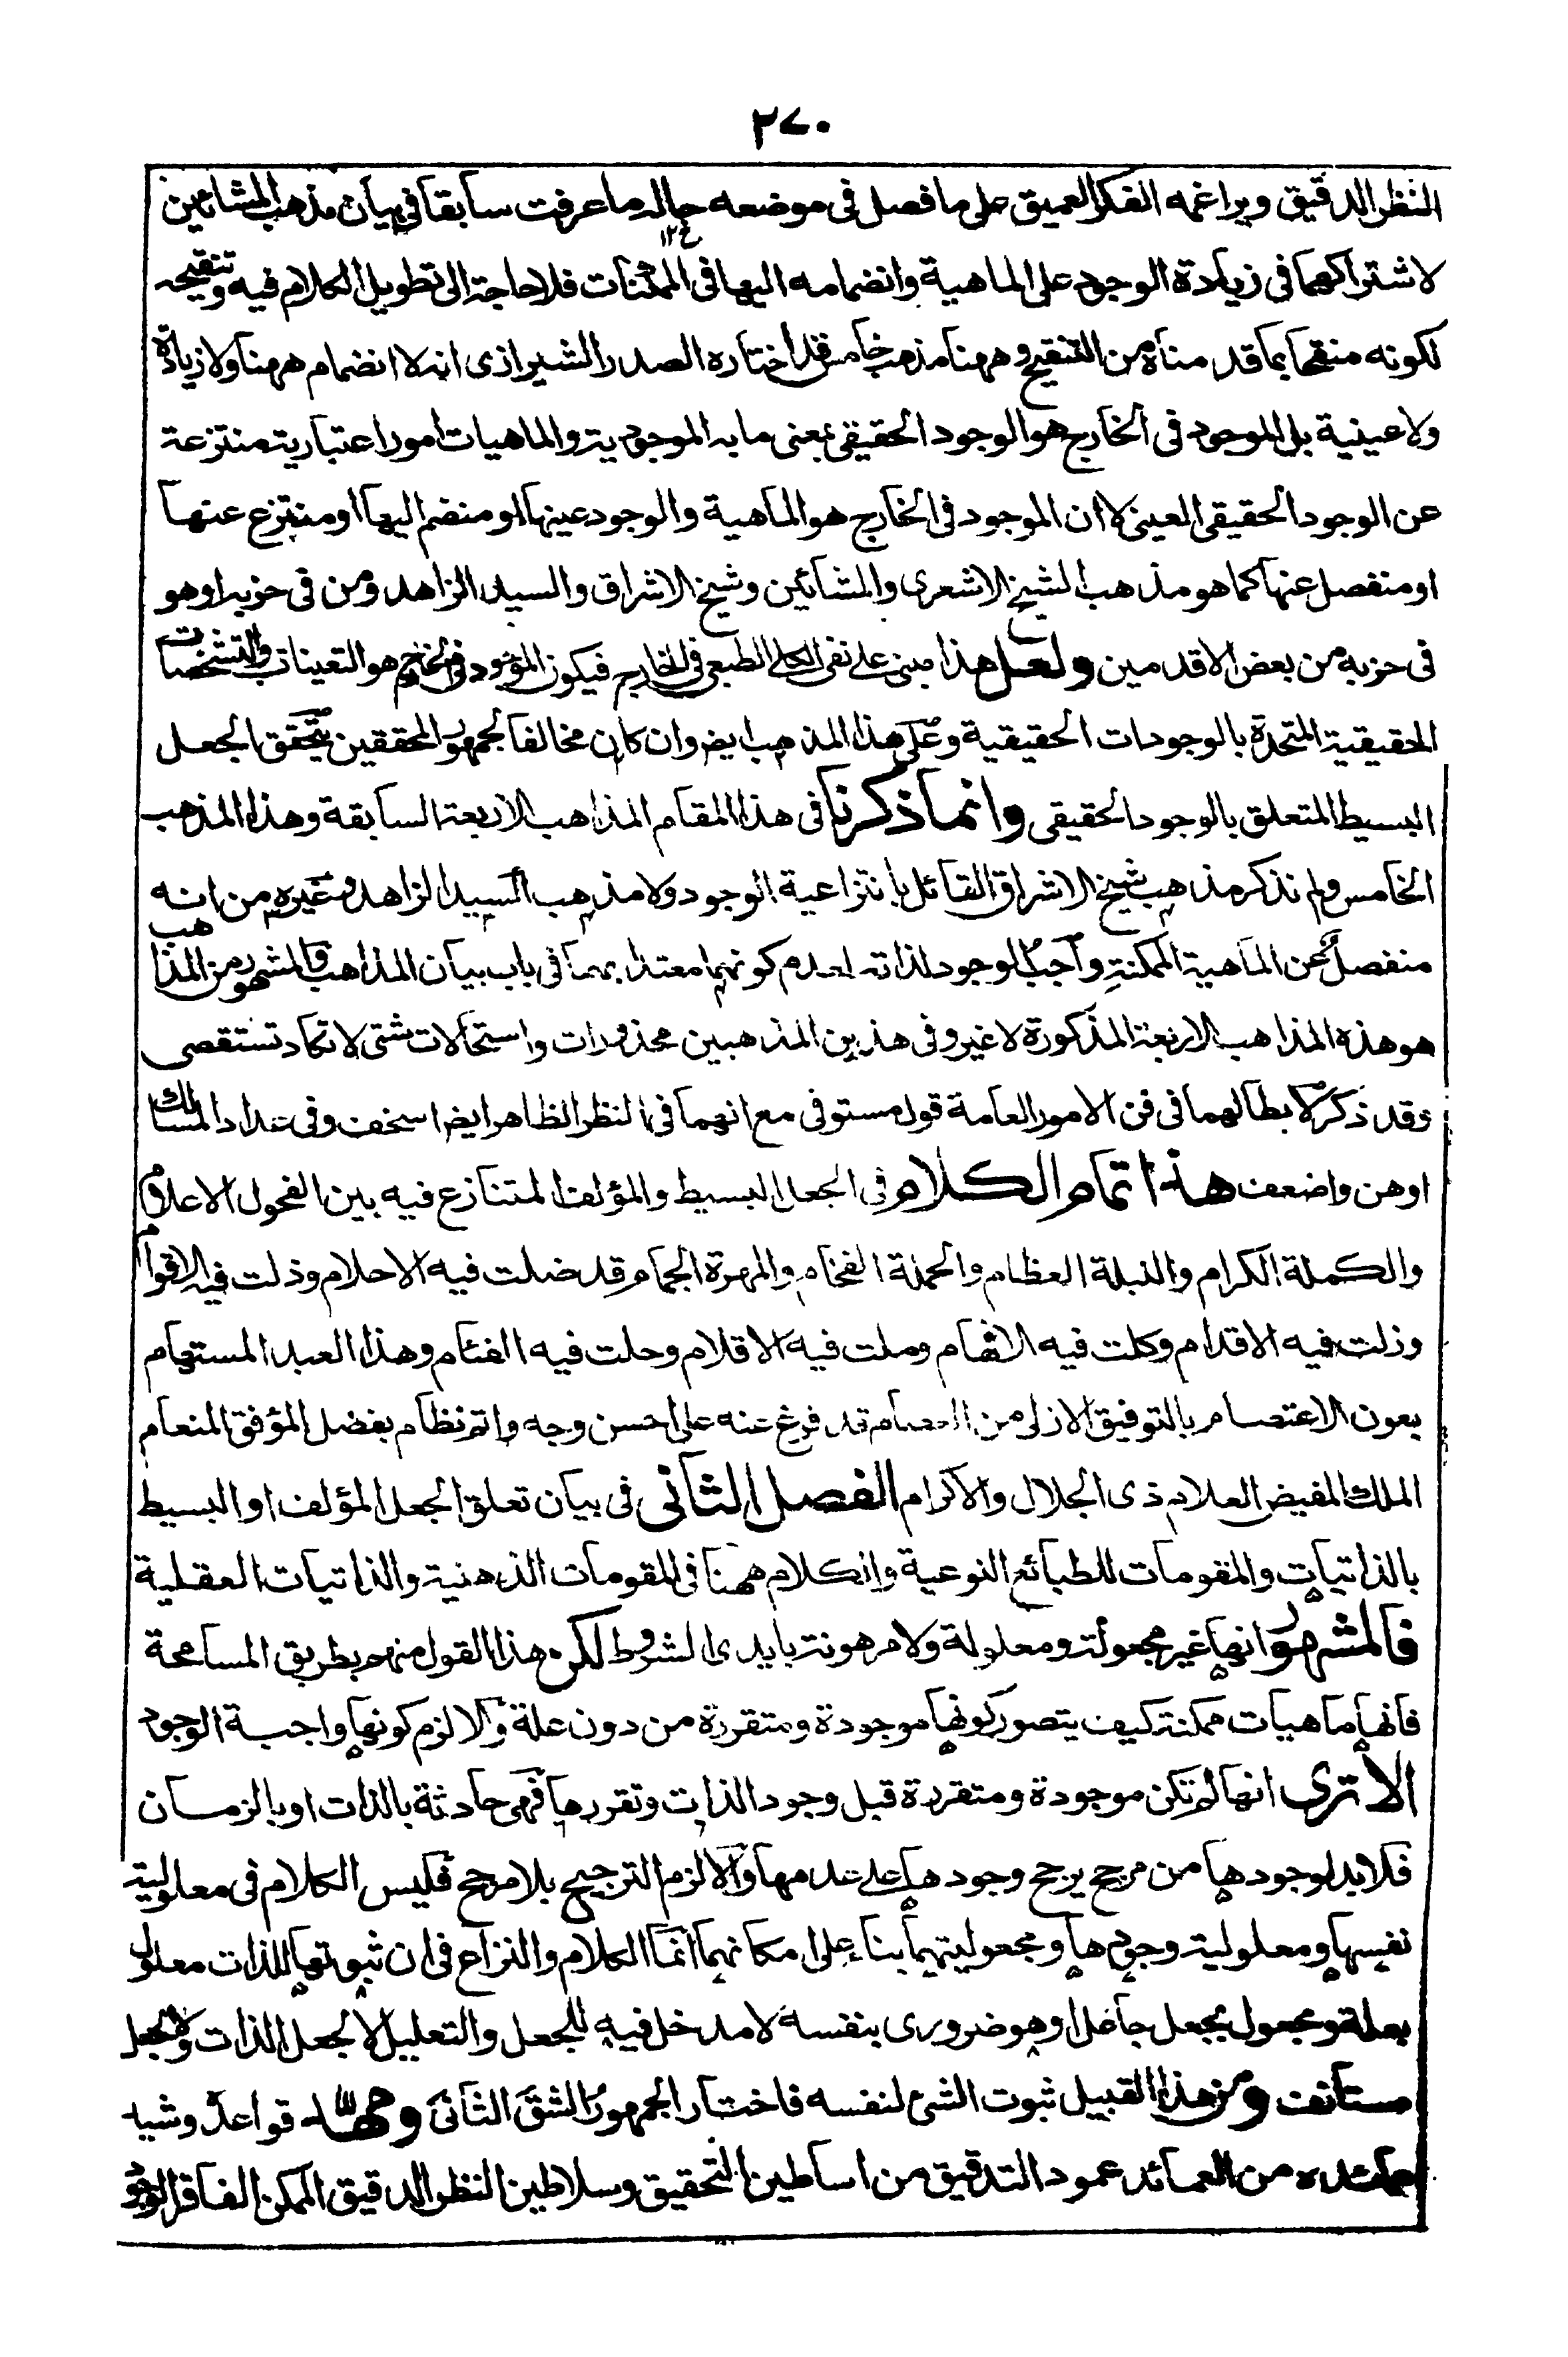 ٢٧٠
النظر الدقيق ويراغمه الفكر العميق على ما فصل فى موضعه حاله ما عرفت سابقا فى بيان مذهب المشائين
لاشتراكهما فى زيادة الوجود على الماهية وانضمامه اليها فى الممكنات فلا حاجة الى تطويل الكلام فيه وتنقيحه
لكونه منقحا بما قدمناه من التنقيح وههنا مذهب خامس قد اختاره الصدر الشيرازى انه لا انضمام ههنا ولا زيادة
ولا عينية بل الموجود فى الخارج هو الوجود الحقيقى بمعنى ما به الموجودية والماهيات امور اعتبارية منتزعة
عن الوجود الحقيقى العينى لا ان الموجود فى الخارج هو الماهية والوجود عينها او منضم اليها او منتزع عنها
او منفصل عنها كما هو مذهب الشيخ الاشعرى والمشائين وشيخ الاشراق والسيد الزاهد ومن فى حزبه او هو
فى حزبه من بعض الاقدمين ولعل هذا مبنى على نفى الكلى الطبعى فى الخارج فيكون الموجود فى الخارج هو التعينات والتشخصات
الحقيقية المتحدة بالوجودات الحقيقية وعلى هذا المذهب ايضا وان كان مخالفا لجمهور المحققين يتحقق الجعل
البسيط المتعلق بالوجود الحقيقى وانما ذكرنا فى هذا المقام المذاهب الاربعة السابقة وهذا المذهب
الخامس ولم نذكر مذهب شيخ الاشراق القائل بانتزاعية الوجود ولا مذهب السيد الزاهد وغيره من انه
منفصل عن الماهية الممكنة واجب الوجود لذاته لعدم كونهما معتدا بهما فى باب بيان المذاهب والمشهور من المذاهب
هو هذه المذاهب الاربعة المذكورة لا غير وفى هذين المذهبين محذورات واستحالات شتى لا تكاد تستقصى
وقد ذكر لابطالهما فى فن الامور العامة قول مستوفى مع انهما فى النظر الظاهر ايضا اسخف وفى عداد المسالك
اوهن واضعف هذا تمام الكلام فى الجعل البسيط والمؤلف المتنازع فيه بين الفحول الاعلام
والكملة الكرام والنبلة العظام والحملة الفخام والمهرة الجمام قد ضلت فيه الاحلام وذلت فيه الاقوام
وزلت فيه الاقدام وكلت فيه الافهام وملت فيه الاقلام وحلت فيه الفئام وهذا العبد المستهام
بعون الاعتصام بالتوفيق الازلى من قد فرغ عنه على احسن وجه واتم نظام بفضل الموفق المنعام
الملك المفيض العلام ذى الجلال والاكرام الفصل الثانى فى بيان تعلق الجعل المؤلف او البسيط
بالذاتيات والمقومات للطبائع النوعية والكلام ههنا فى المقومات الذهنية والذاتيات العقلية
فالمشهور انها غير مجعولة ومعلولة ولا مرهونة بايدى الشروط لكن هذا القول منهم بطريق المسامحة
فانها ماهيات ممكنة كيف يتصور كونها موجودة ومتقررة من دون علة والا لزم كونها واجبة الوجود
الا ترى انها لم تكن موجودة ومتقررة قبل وجود الذات وتقررها فهى حادثة بالذات او بالزمان
فلا بد لوجودها من مرجح يرجح وجودها على عدمها والا لزم الترجيح بلا مرجح فليس الكلام فى معلولية
نفسها ومعلولية وجودها ومجعوليتهما بناء على امكانهما انما الكلام والنزاع فى ان ثبوتها للذات معلول
بعلة ومجعول بجعل جاعل او هو ضرورى بنفسه لا مدخل فيه للجعل والتعليل الا لجعل الذات ولا لجعل
مستانف ومن هذا القبيل ثبوت الشئ لنفسه فاختار الجمهور الشق الثانى وممن قواعده وشيد
من العمائد عمود التدقيق من اساطين التحقيق وسلاطين النظر الدقيق الممكن الفاقر الوجود